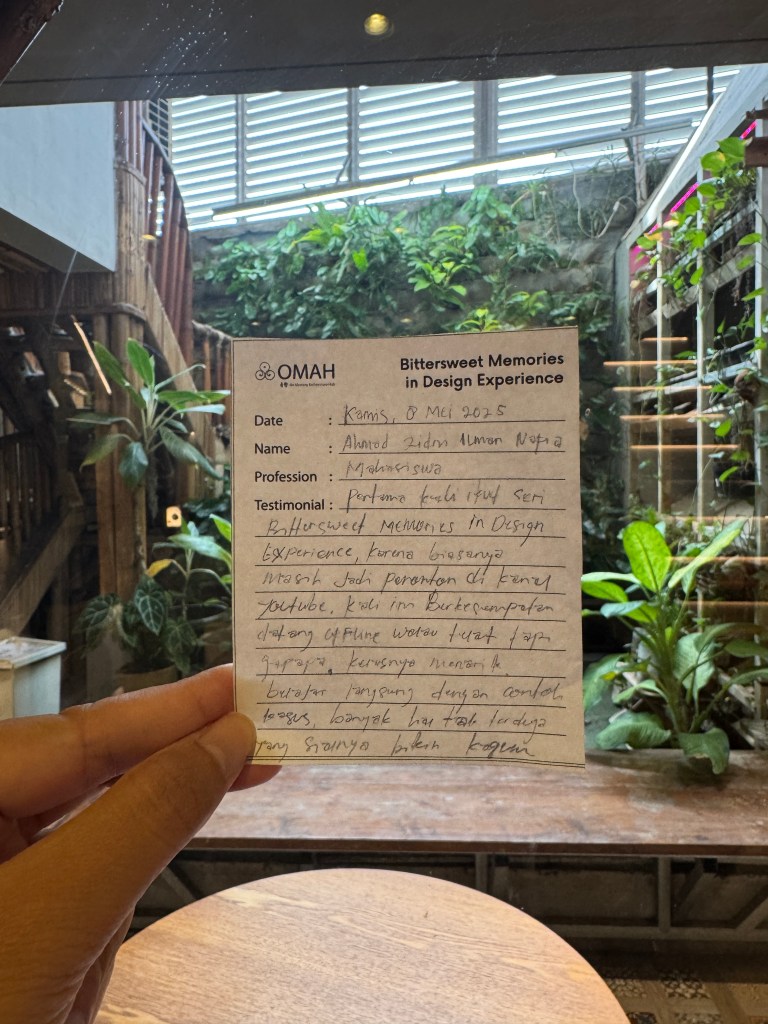 OMAH
Bittersweet Memories
in Design Experience
Date : Kamis, 8 Mei 2025
Name : Ahmad Zidni Ilman
Profession : Mahasiswa
Testimonial : Pertama kali ikut seri
Bittersweet Memories in Design
Experience, karena biasanya
masih jadi penonton di kanal
youtube, kali ini berkesempatan
datang offline walau telat tapi
gapapa. kelasnya menarik
belajar langsung dengan contoh
kasus, banyak hal tak terduga
yang bikin kagum